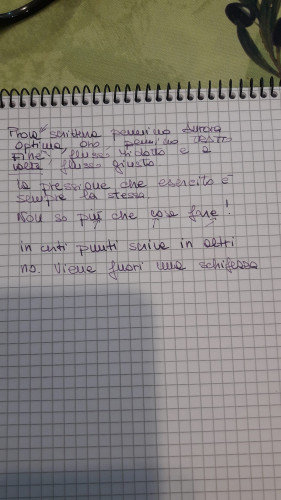 Prova scrittura pennino Aurora
Optima, oro, pennino destro
Fine, flusso ridotto e a
volte flusso giusto
La pressione che esercito è
sempre la stessa
Non so più che cosa fare!
in certi punti scrive in altri
no. Viene fuori una schifezza